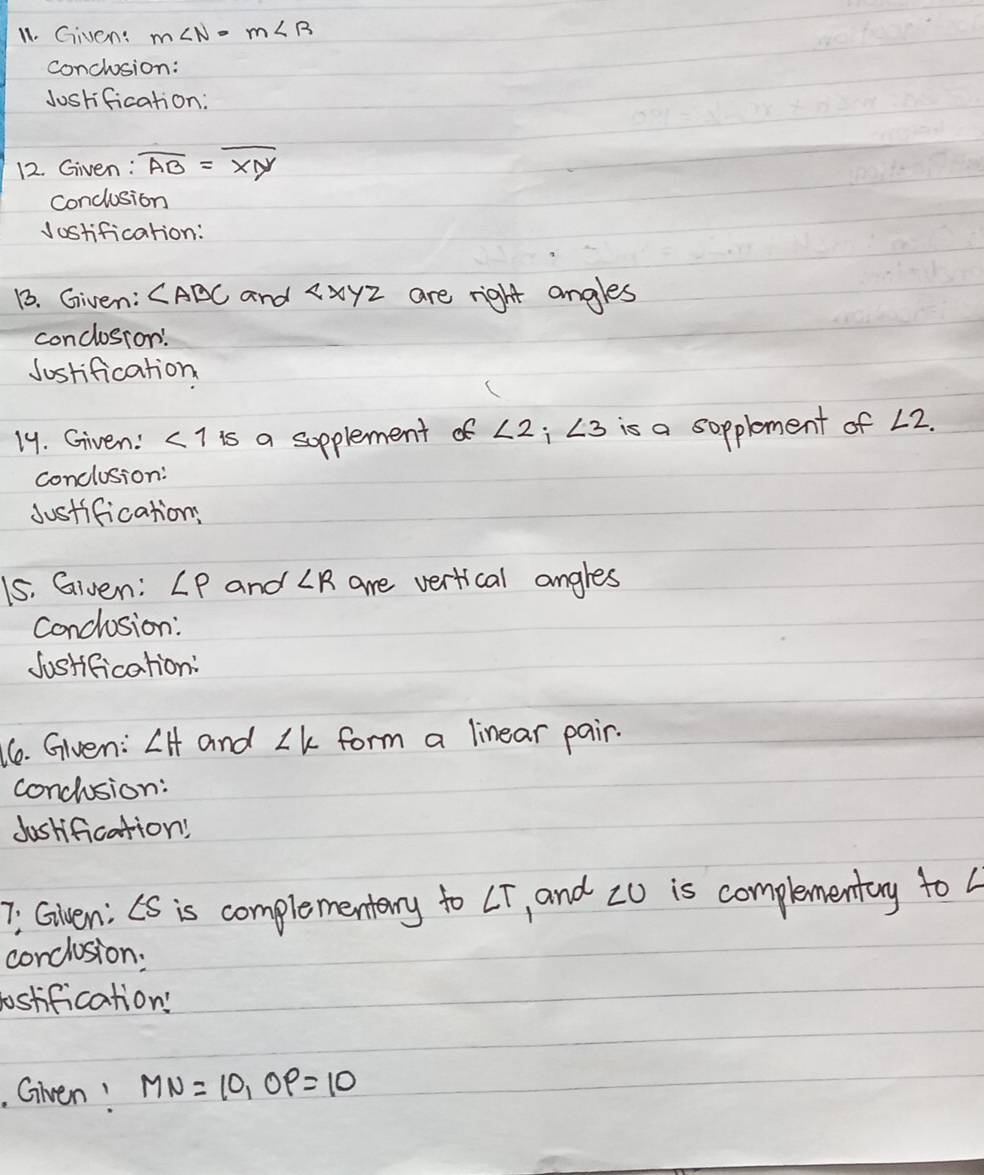 11. Given: m<N = m<B
Conclusion:
Justification:
12. Given: AB = XY
Conclusion
Justification:
13. Given: <ABC and <XYZ are right angles
conclusion:
Justification
14. Given: <1 is a supplement of ∠2; ∠3 is a supplement of ∠2.
Conclusion:
Justification:
15. Given: ∠P and ∠R are vertical angles
Conclusion:
Justification:
16. Given: ∠H and ∠K form a linear pair.
Conclusion:
Justification:
7. Given: ∠S is complementary to ∠T, and ∠U is complementary to ∠
Conclusion:
ustification:
. Given: MN = 10, OP = 10